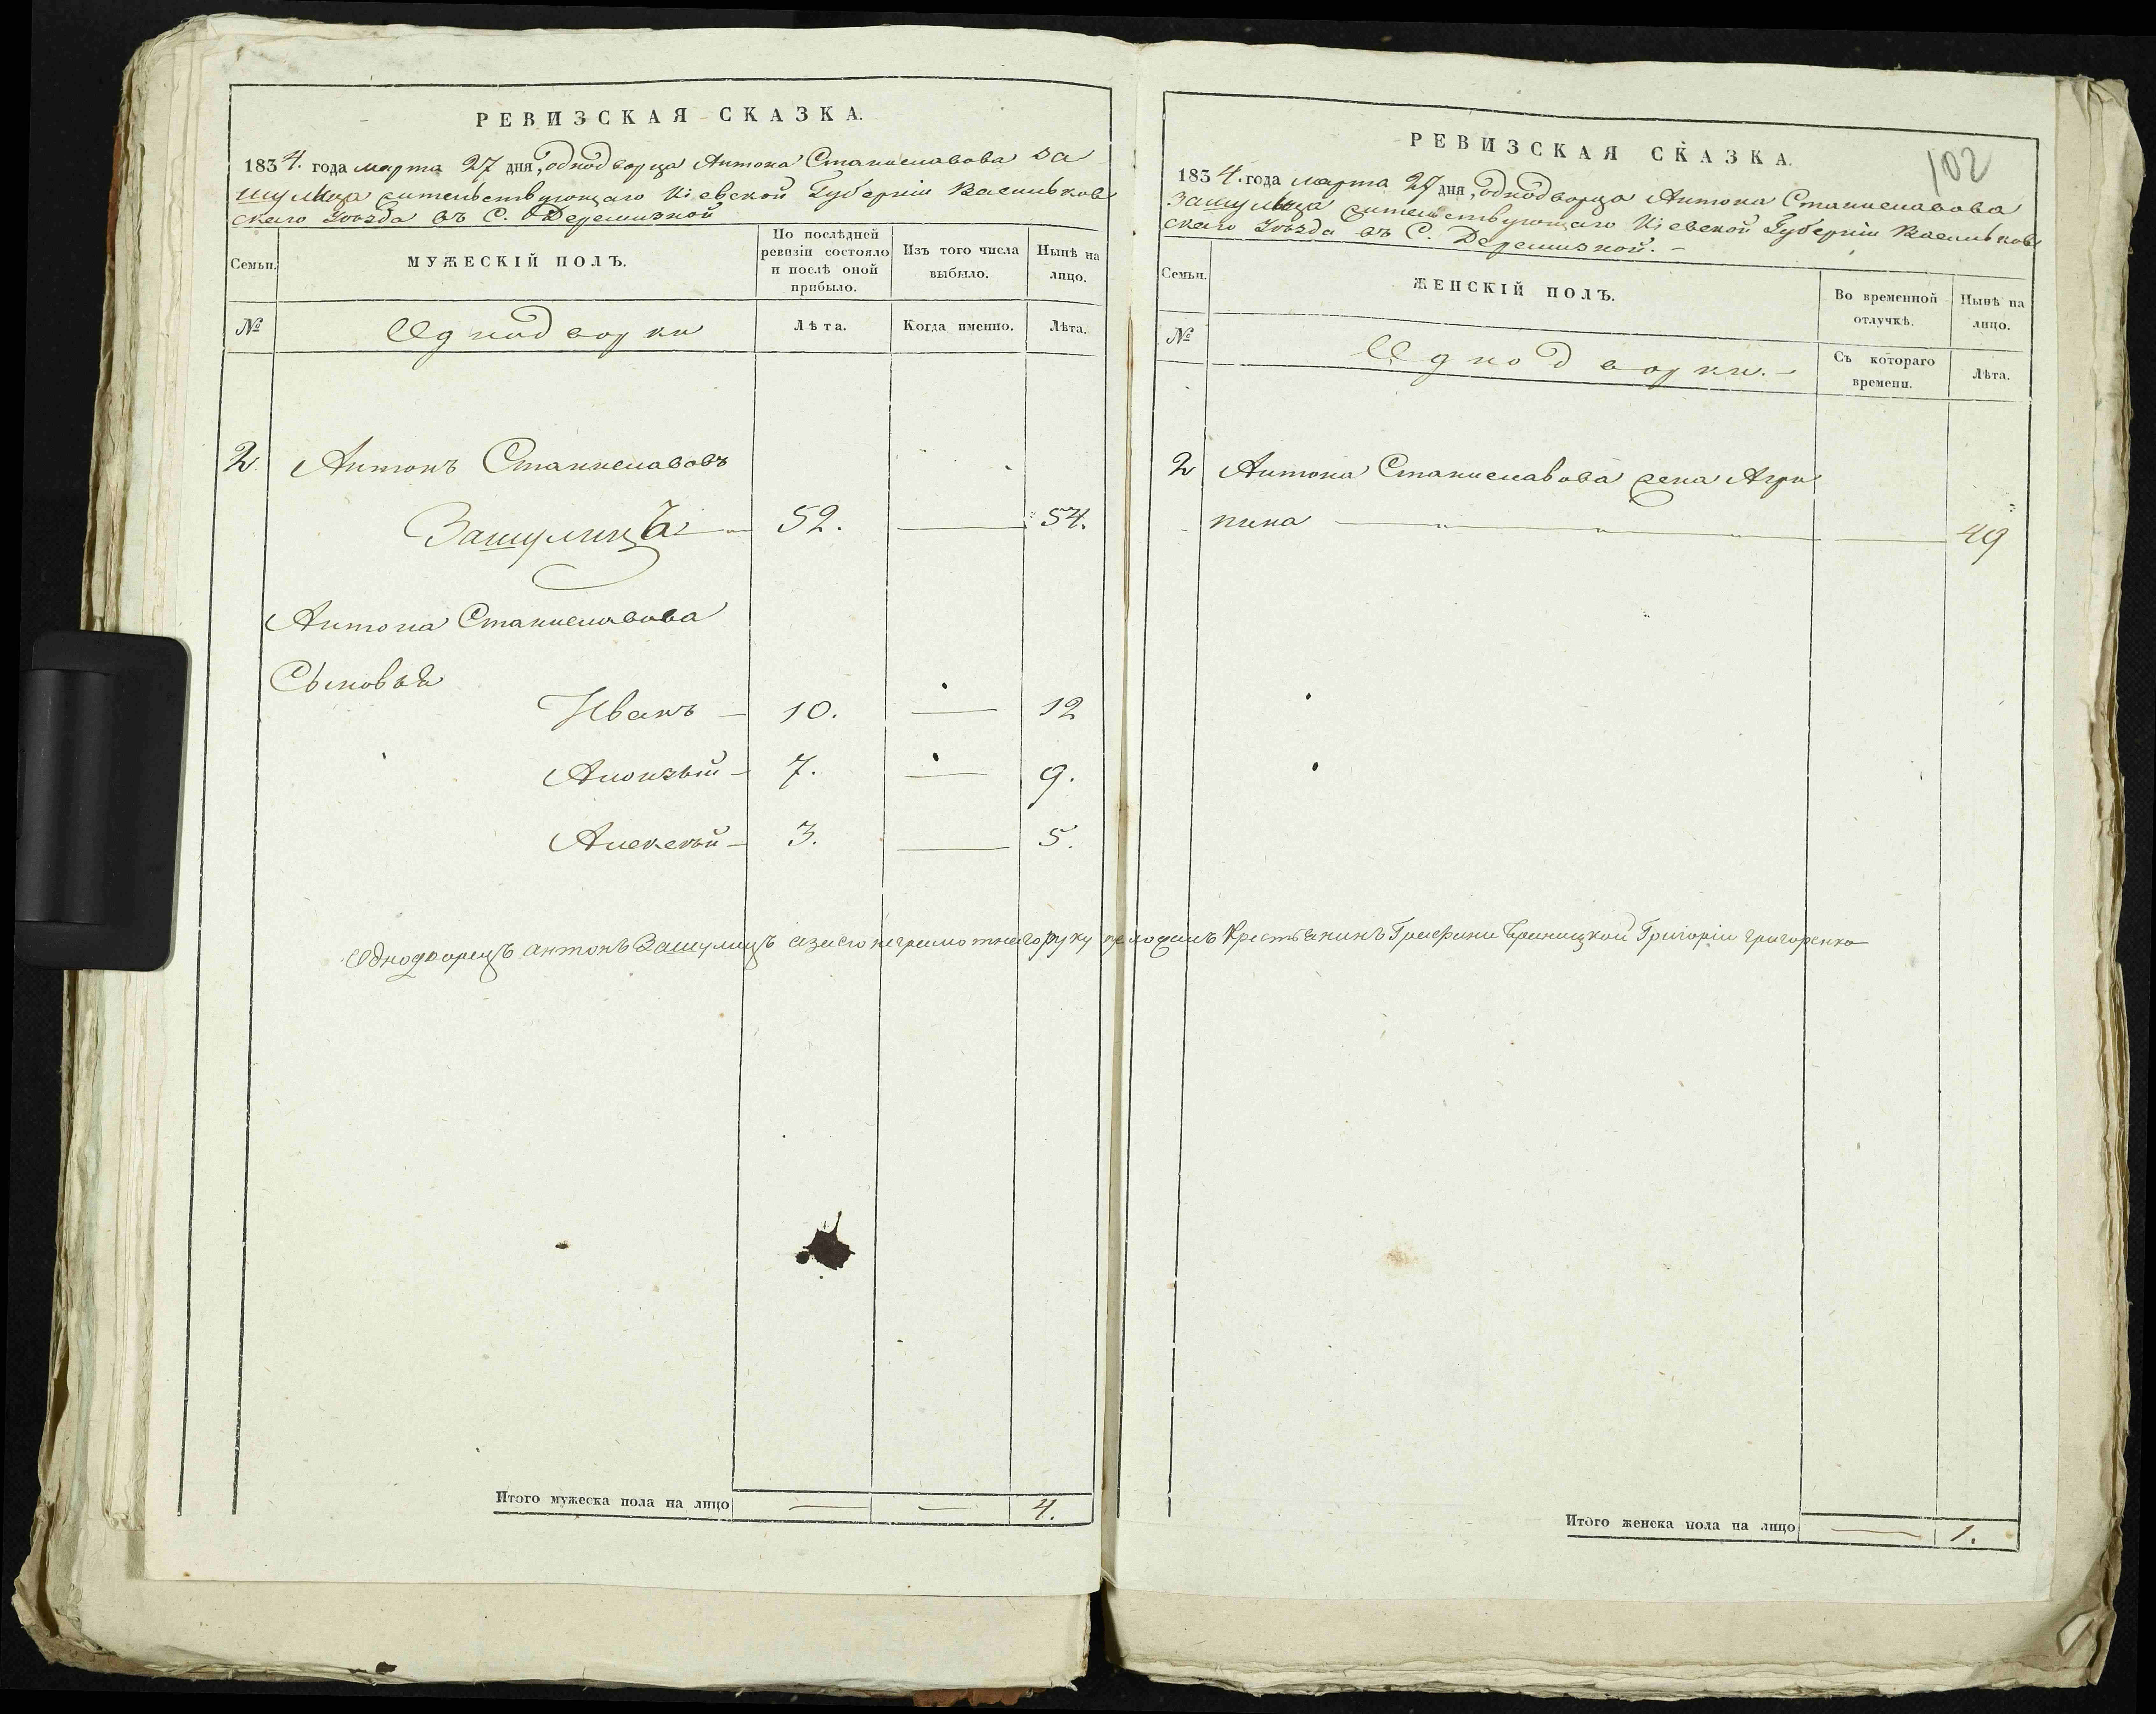 РЕВИЗСКАЯ СКАЗКА.
1834. года марта 27 дня, однодворца Антона Станиславова За
шулица жительствующаго Кіевской Губерніи Васильков
скаго Уѣзда въ С. Деремизной
Семьи.
МУЖЕСКІЙ ПОЛЪ.
По послѣдней
ревизіи состояло
и послѣ оной
прибыло.
Изъ того числа
выбыло.
Нынѣ на
лицо.
№
Однодворки
Лѣта.
Когда именно.
Лѣта.
2. Антонъ Станиславовъ
Зашулицъ 52. 54.
Антона Станиславова
Сыновья
Иванъ 10. 12
Алоизый 7. 9.
Алексѣй 3. 5.
Однодворецъ антонъ Зашулицъ азаего неграмотнаго руку приложилъ Крестьянинъ Графини Браницкой Григорій григоренко
Итого мужеска пола на лицо 4.
102
РЕВИЗСКАЯ СКАЗКА.
1834. года марта 27 дня, однодворца Антона Станиславова
Зашулица жительствующаго Кіевской Губерніи Васильков
скаго Уѣзда въ С. Деремизной.
Семьи.
ЖЕНСКІЙ ПОЛЪ.
Во временной
отлучкѣ.
Нынѣ на
лицо.
№
Однодворки.
Съ котораго
времени.
Лѣта.
2 Антона Станиславова жена Агри
пина 49
Итого женска пола на лицо 1.